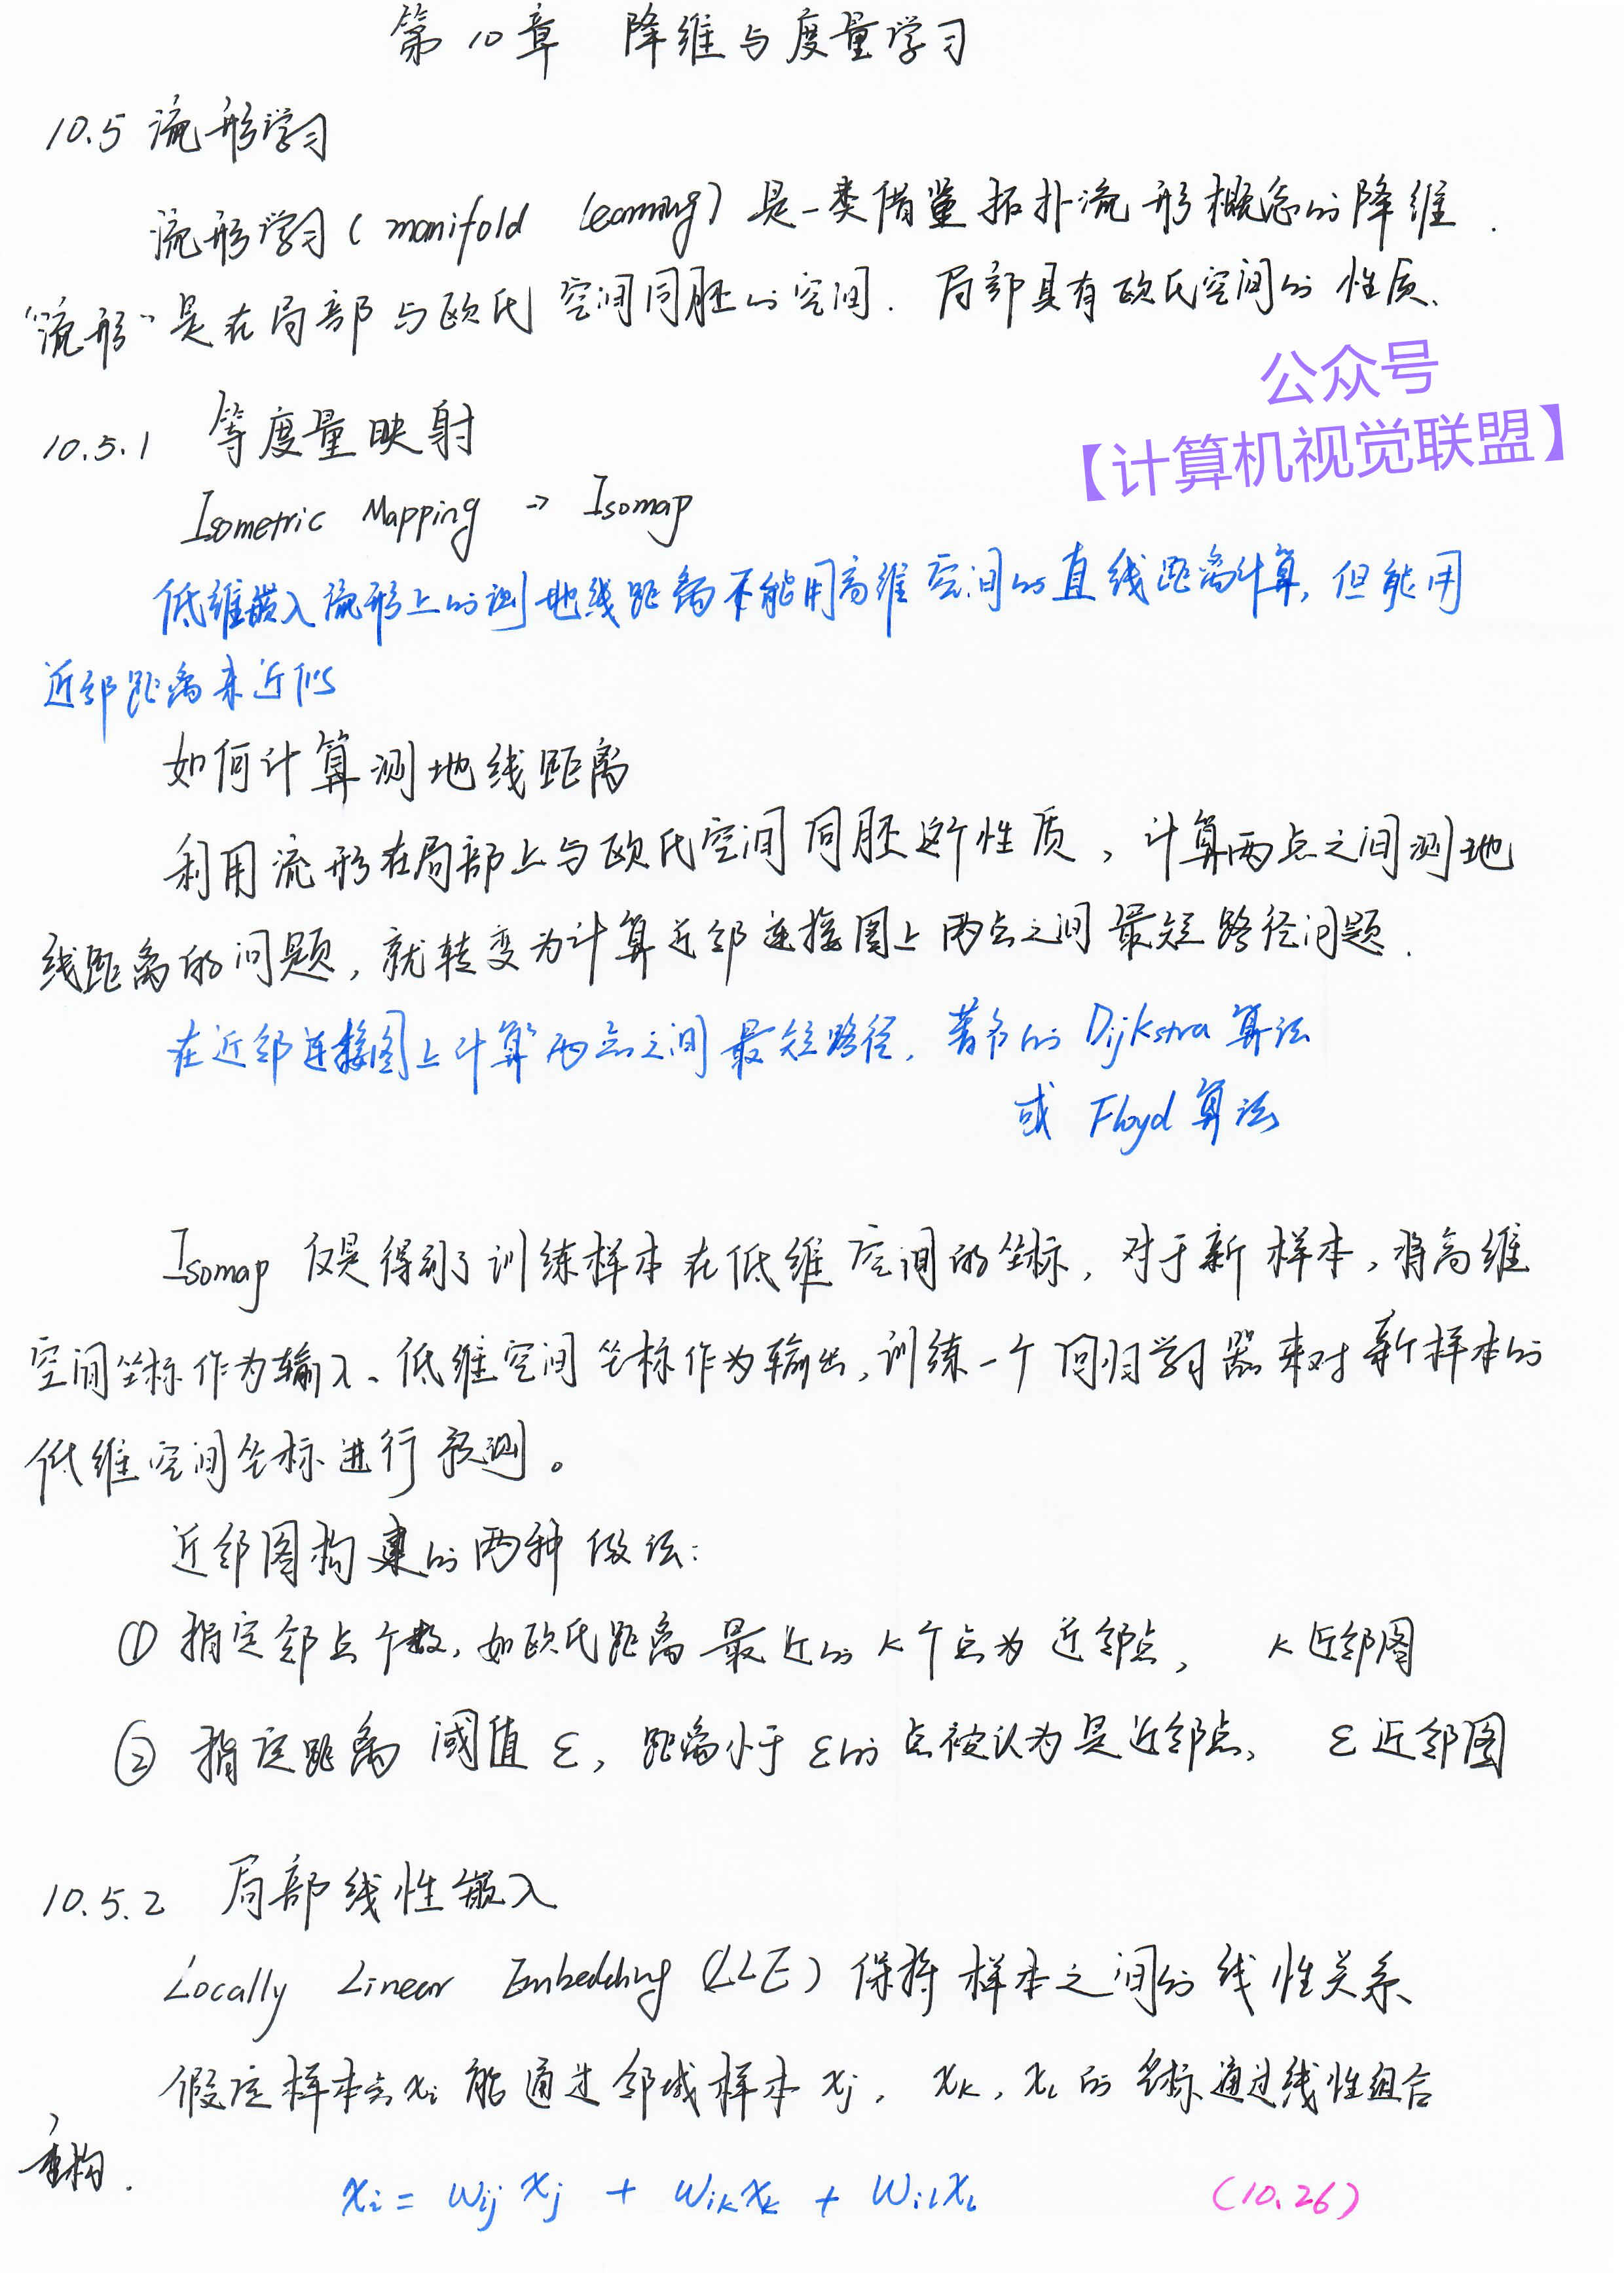 第10章 降维与度量学习
10.5 流形学习
流形学习(manifold learning)是一类借鉴拓扑流形概念的降维.
“流形”是在局部与欧氏空间同胚的空间.局部具有欧氏空间的性质.
公众号
【计算机视觉联盟】
10.5.1 等度量映射
Isometric Mapping → Isomap
低维嵌入流形上的测地线距离不能用高维空间的直线距离计算,但能用
近邻距离来近似
如何计算测地线距离
利用流形在局部上与欧氏空间同胚这个性质,计算两点之间测地
线距离的问题,就转变为计算近邻连接图上两点之间最短路径问题.
在近邻连接图上计算两点之间最短路径,著名的Dijkstra算法
或Floyd算法
Isomap仅是得到了训练样本在低维空间的坐标,对于新样本,将高维
空间坐标作为输入、低维空间坐标作为输出,训练一个回归学习器来对新样本的
低维空间坐标进行预测。
近邻图构建的两种做法:
① 指定邻点个数,如欧氏距离最近的k个点为近邻点, k近邻图
② 指定距离阈值ε,距离小于ε的点被认为是近邻点, ε近邻图
10.5.2 局部线性嵌入
Locally Linear Embedding (LLE)保持样本之间的线性关系
假定样本点xi能通过邻域样本xj,xk,xl的坐标通过线性组合
重构.
xi = wij xj + wik xk + wil xl (10.26)